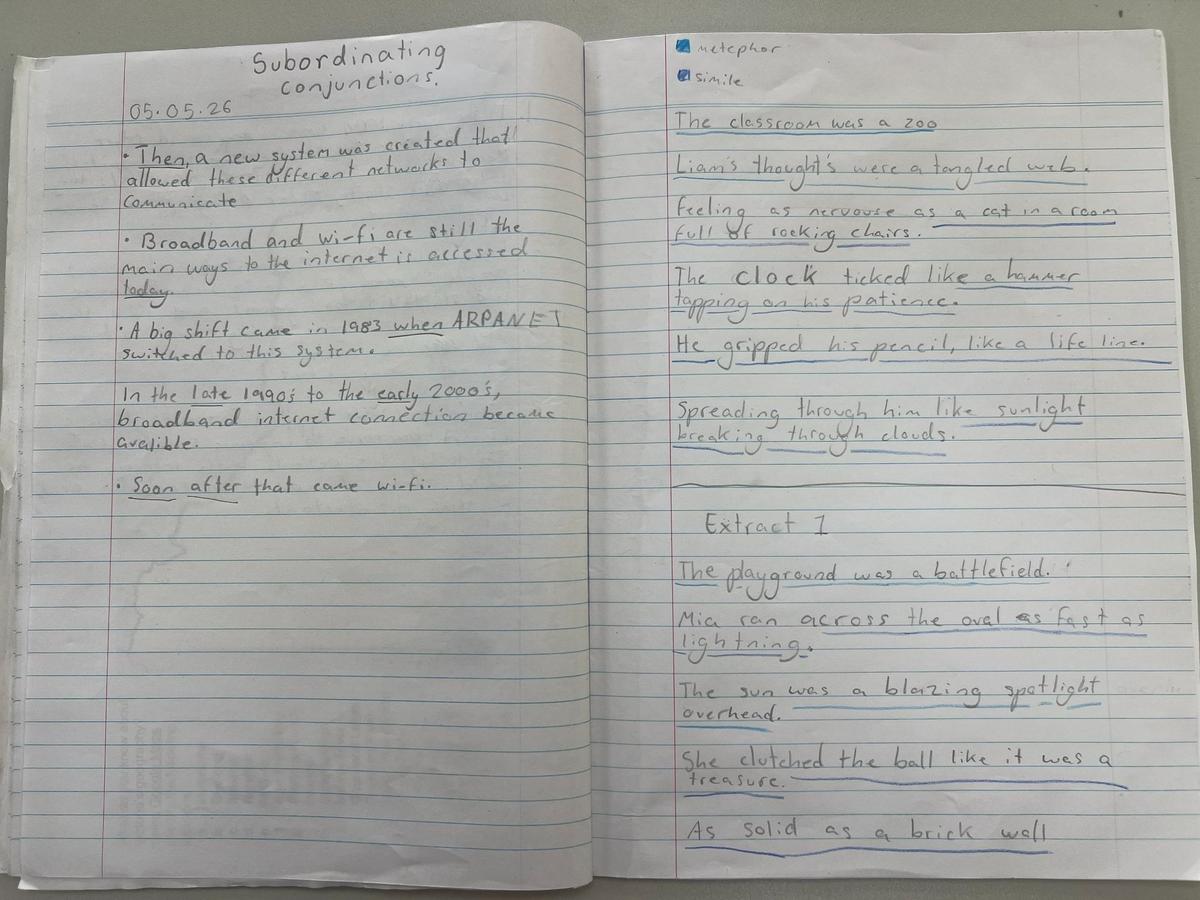 Subordinating
conjunctions.
05.05.26
• Then, a new system was created that
allowed these different networks to
communicate
• Broadband and wi-fi are still the
main ways to the internet is accessed
today.
• A big shift came in 1983 when ARPANET
switched to this system.
In the late 1990's to the early 2000's,
broadband internet connection became
avalible.
• Soon after that came wi-fi.
metephor
simile
The classroom was a zoo
Liam's thought's were a tangled web.
feeling as nervouse as a cat in a room
full of rocking chairs.
The clock ticked like a hammer
tapping on his patience.
He gripped his pencil, like a life line.
Spreading through him like sunlight
breaking through clouds.
Extract 1
The playground was a battlefield.
Mia ran across the oval as fast as
lightning.
The sun was a blazing spotlight
overhead.
She clutched the ball like it was a
treasure.
As solid as a brick wall